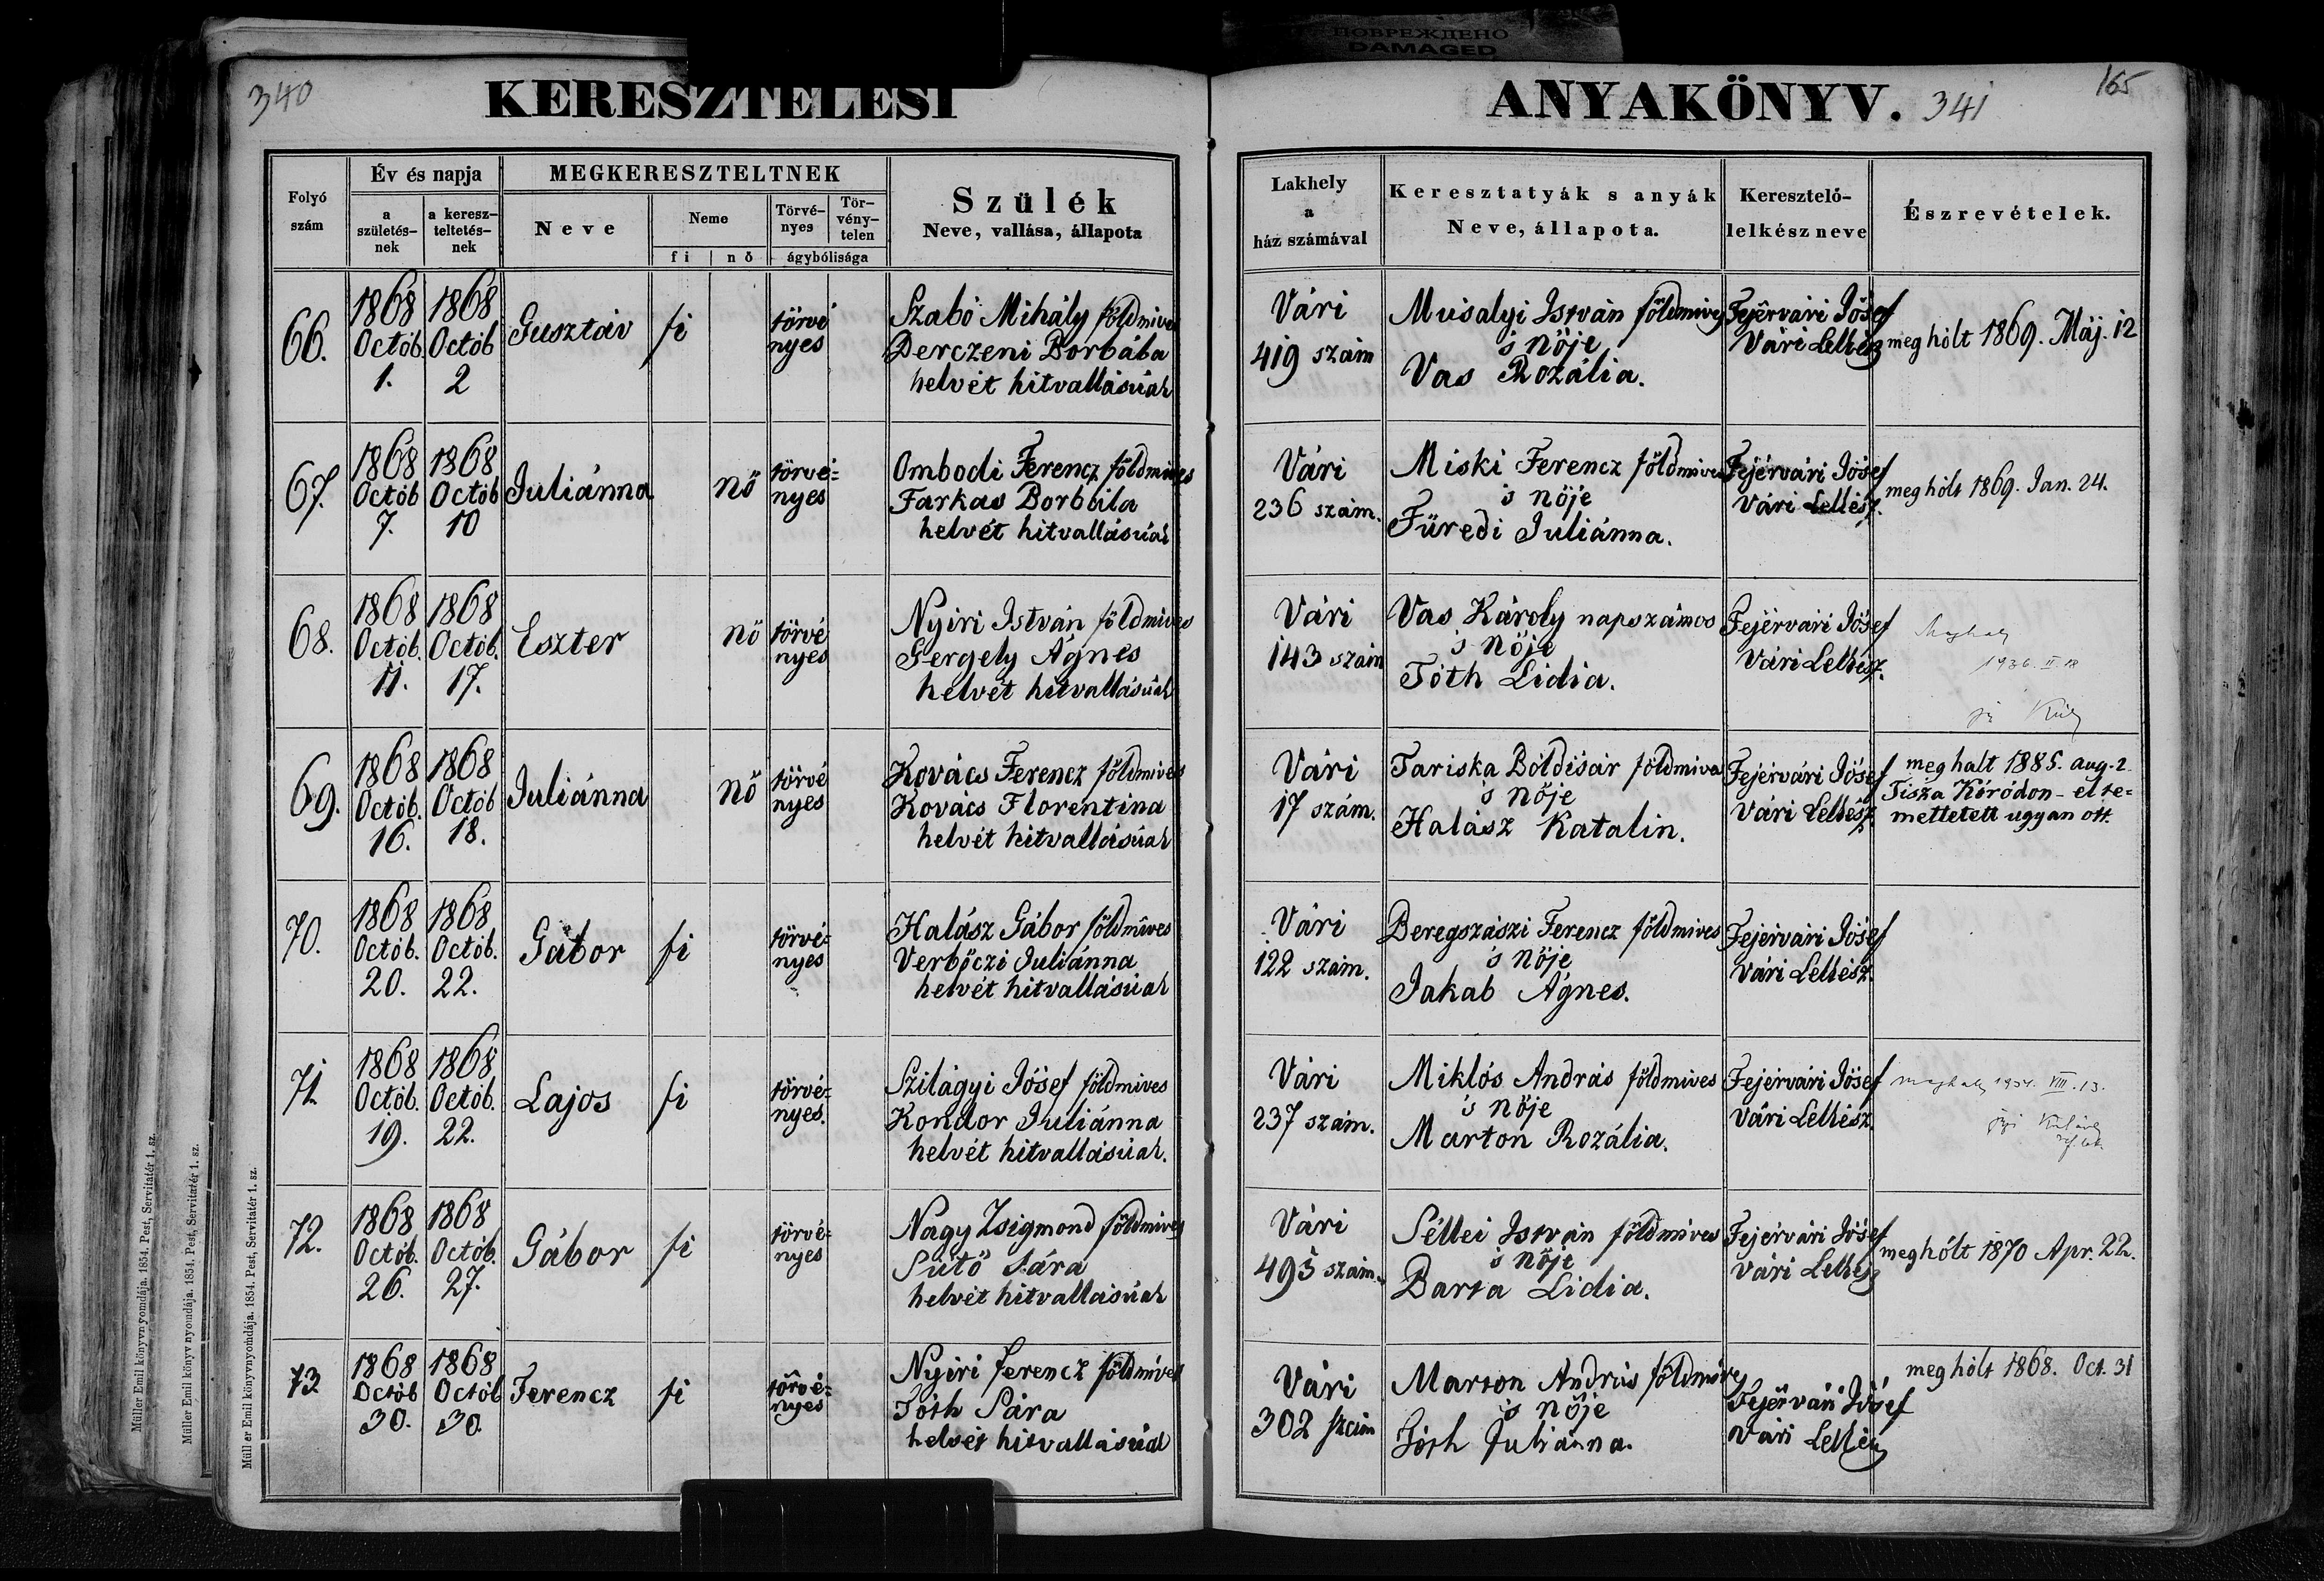 ПОВРЕЖДЕНО
DAMAGED
340
KERESZTELESI
ANYAKÖNYV.
341
165
Folyó szám
Év és napja
a születés-nek
a keresz-teltetés-nek
MEGKERESZTELTNEK
Neve
Neme
fi
nő
Törvé-nyes
Tör-vény-telen
ágybólisága
Szülék
Neve, vallása, állapota
Lakhely a ház számával
Keresztatyák s anyák
Neve, állapota.
Keresztelő-lelkész neve
Észrevételek.
66.
1868 Octób. 1.
1868 Octób 2
Gusztáv
fi
törvé nyes
Szabó Mihály földmives
Derczeni Borbába
helvét hitvallásúak
Vári
419 szám
Musalyi István földmives
s nöje
Vas Rozália.
Fejérvári Jósef
Vári Lelkész
meg hólt 1869. Máj. 12
67.
1868 Octób 7.
1868 Octób 10
Juliánna
nő
törvé-nyes
Ombodi Ferencz földmives
Farkas Borbála
helvét hitvallásúak
Vári
236 szám.
Miski Ferencz földmives
s nöje
Füredi Juliánna.
Fejérvári Jósef
Vári Lelkész.
meg hólt 1869. Jan. 24.
68.
1868 Octób. 11.
1868 Octób. 17.
Eszter
nő
törvé nyes
Nyiri István földmives
Gergely Ágnes
helvét hitvallásúak
Vári
143 szám
Vas Károly napszámos
s nöje
Tóth Lidia.
Fejérvári Jósef
Vári Lelkész.
Meghalt
1936. II. 18
69.
1868 Octób. 16.
1868 Octób 18.
Juliánna
nő
törvé nyes
Kovács Ferencz földmives
Kovács Florentina
helvét hitvallásúak
Vári
17 szám.
Tariska Boldisár földmives
s nöje
Halász Katalin.
Fejérvári Jósef
Vári Lelkész
meghalt 1885. aug. 2
Tisza Kóródon - elte=
mettetett ugyan ott.
70.
1868 Octób. 20.
1868 Octób. 22.
Gábor
fi
törvé-nyes
Halász Gábor földmíves
Verbőczi Juliánna
helvét hitvallásúak
Vári
122 szám.
Beregszászi Ferencz földmives
s nöje
Jakab Ágnes.
Fejérvári Jósef
Vári Lelkész.
71.
1868 Octób. 19.
1868 Octób. 22.
Lajos
fi
törvé-nyes.
Szilágyi Jósef földmives
Kondor Juliánna
helvét hitvallásúak.
Vári
237 szám.
Miklós András földmives
s nöje
Marton Rozália.
Fejérvári Jósef
Vári Lelkész
meghalt VIII. 13.
72.
1868 Octób. 26.
1868 Octób. 27.
Gábor
fi
törvé-nyes
Nagy Zsigmond földmives
Sütő Sára
helvét hitvallásúak
Vári
495 szám.
Séllei István földmives
s nöje
Barta Lidia.
Fejérvári Jósef
Vári Lelkész
meghólt 1870 Apr. 22.
73
1868 Octób 30.
1868 Octób 30.
Ferencz
fi
törvé-nyes
Nyiri Ferencz földmíves
Tóth Sára
helvét hitvallásúak
Vári
302 szám
Marton András földmives
s nöje
Tóth Juliánna.
Fejérvári Jósef
Vári Lelkész
meg hólt 1868. Oct. 31
Müller Emil könyvnyomdája. 1854. Pest, Servitatér 1. sz.
Müller Emil könyv nyomdája. 1854. Pest, Servitatér 1. sz.
Müller Emil könyvnyomdája. 1854. Pest, Servitatér 1. sz.